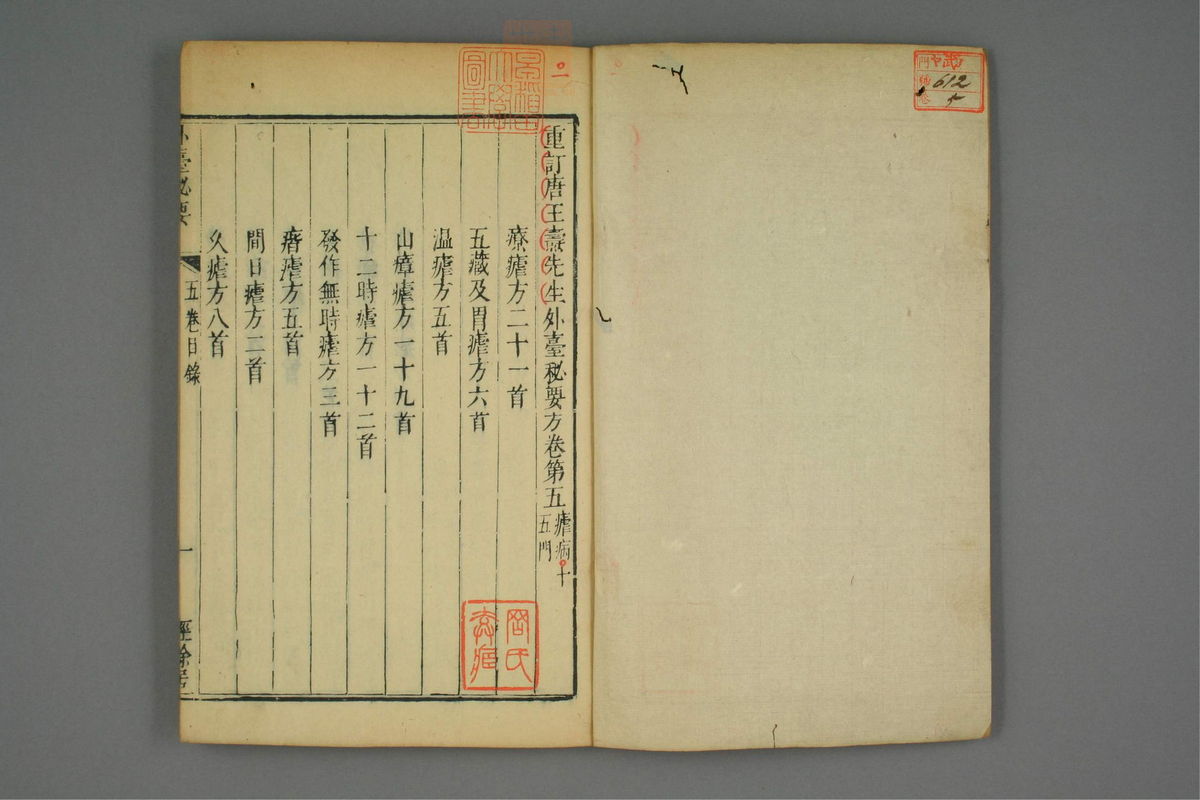 重訂唐王燾先生外臺秘要方卷第五
瘧病十
五門
療瘧方二十一首
五藏及胃瘧方六首
温瘧方五首
山瘴瘧方一十九首
十二時瘧方一十二首
發作無時瘧方三首
瘖瘧方五首
間日瘧方二首
久瘧方八首
外臺秘要
五卷目錄
一
經餘居
612